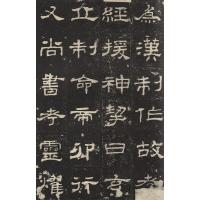 為漢制作故孝
經援神挈曰玄
丘制命帝卯行
又尚書考靈燿